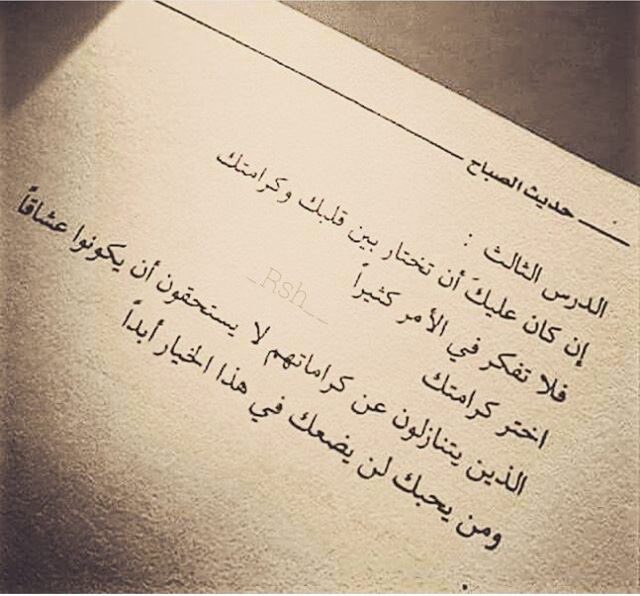 حديث الصباح
الدرس الثالث :
إن كان عليكَ أن تختار بين قلبك وكرامتك
فلا تفكر في الأمر كثيراً
اختر كرامتك
الذين يتنازلون عن كراماتهم لا يستحقون أن يكونوا عشاقاً
ومن يحبك لن يضعك في هذا الخيار أبداً
_Rsh__